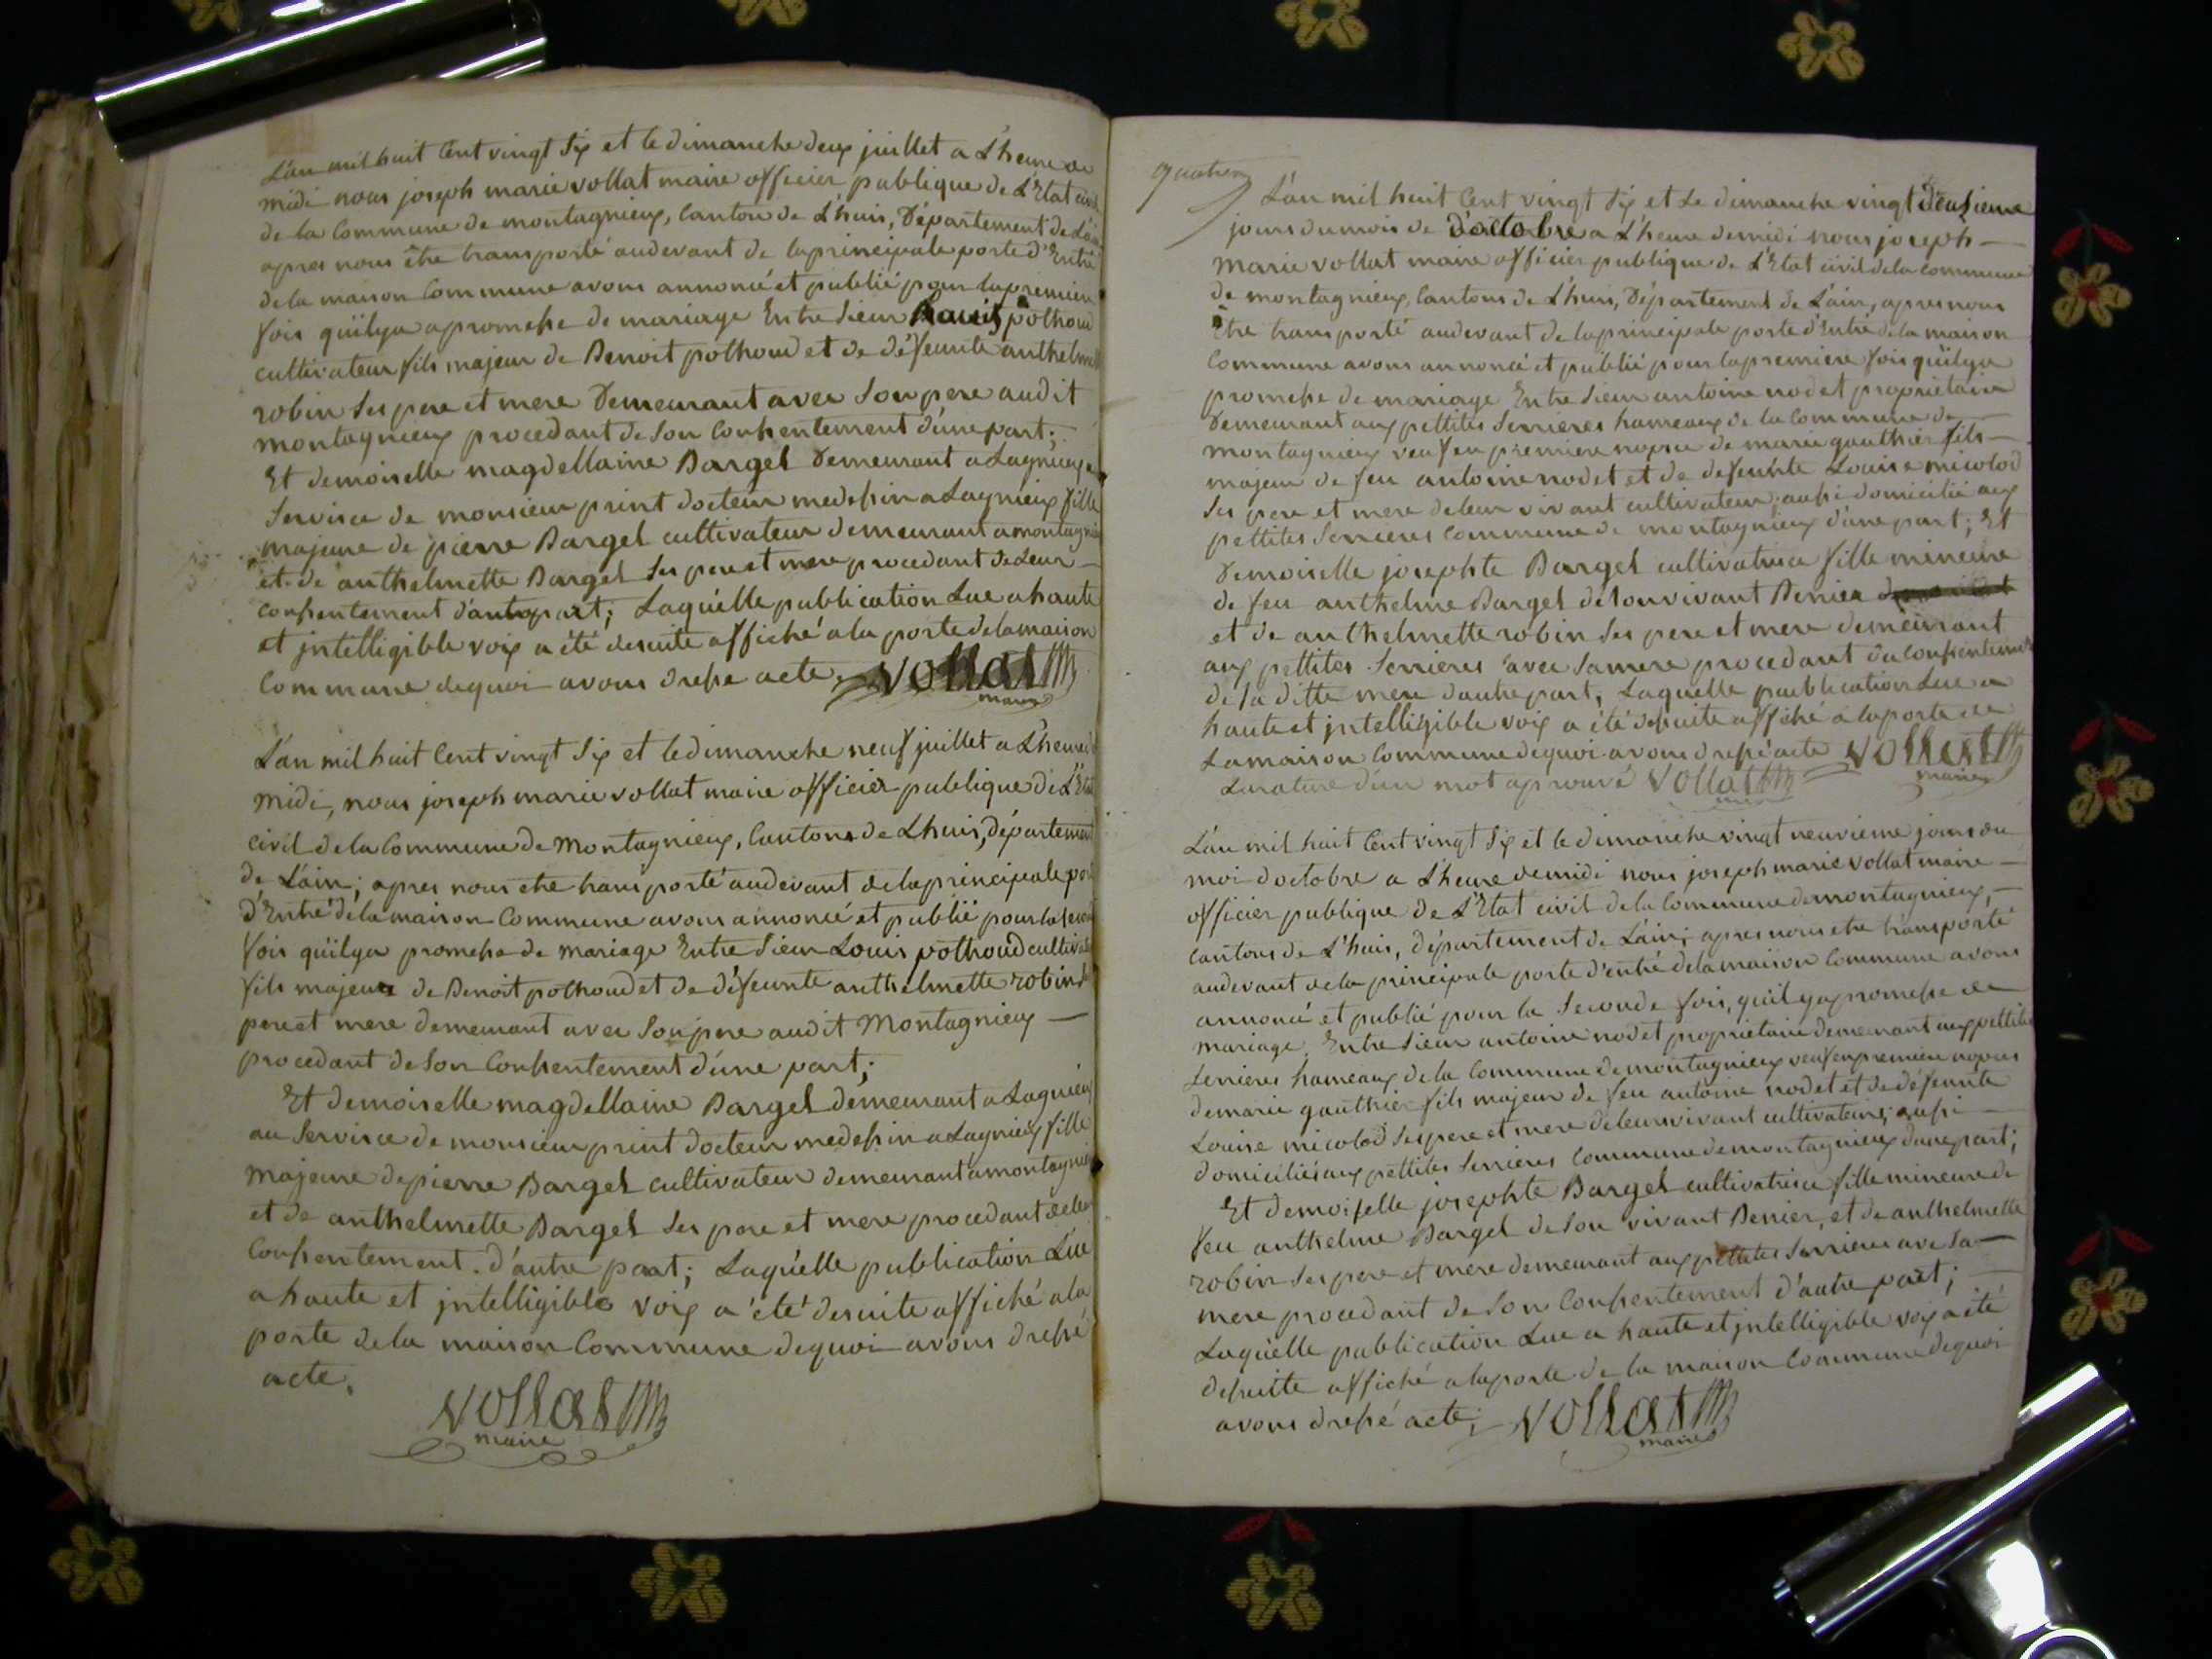 L'an mil huit Cent vingt Six et le dimanche deux juillet a L'heure de
midi nous joseph marie vollat maire officier publique de L'Etat civil
de la Commune de montagnieux, Canton de L'huis, Département de L'ain
apres nous être transporté audevant de la principale porte d'Entré
de la maison Commune avons annoncé et publié pour la premiere
fois qu'il y a promesse de mariage Entre Sieur Louis pothoud
cultivateur fils majeur de Benoit pothoud et de défeunte anthelmette
robin Ses pere et mere Demeurant avec Son pere audit
montagnieux procedant de Son Consentement d'une part;
Et demoiselle magdellaine Bargel Demeurant a Lagnieux
Service de monsieur print docteur medessin a Lagnieux fille
majeure de pierre Bargel cultivateur demeurant a montagnieux
et de anthelmette Bargel Ses pere et mere procedant de Leur
consentement d'autre part; Laquelle publication Lue a haute
et jntelligible voix a été desuite affiché a la porte de la maison
Commune dequoi avons dressé acte. vollat
maire
L'an mil huit Cent vingt Six et le dimanche neuf juillet a L'heure de
midi, nous joseph marie vollat maire officier publique de L'Etat
civil de la Commune de Montagnieux, Cantons de Lhuis, département
de L'ain; apres nous etre transporté audevant de la principale porte
d'Entré de la maison Commune avons annoncé et publié pour la seconde
fois qu'il y a promesse de mariage Entre Sieur Louis pothoud cultivateur
fils majeur de Benoit pothoud et de défeunte anthelmette robin Ses
pere et mere demeurant avec Son pere audit Montagnieux
procedant de Son Consentement d'une part;
Et demoiselle magdellaine Bargel demeurant a Lagnieux
au Service de monsieur print docteur medessin a Lagnieux fille
majeure de pierre Bargel cultivateur demeurant a montagnieux
et de anthelmette Bargel Ses pere et mere procedant de leur
Consentement d'autre part; Laquelle publication Lue
a haute et jntelligible voix a été desuite affiché a la
porte de la maison Commune dequoi avons dressé
acte.
vollat
maire
L'an mil huit Cent vingt Six et Le dimanche vingt deuxieme
jours du mois de d'octobre a L'heure de midi nous joseph
marie vollat maire officier publique de L'Etat civil de la commune
de montagnieux, Cantons de Lhuis, Département de L'ain, apres nous
être transporté audevant de la principale porte d'Entré de la maison
Commune avons annoncé et publié pour la premiere fois qu'il y a
promesse de mariage Entre Sieur antoine nodet propriétaire
Demeurant aux pettites Serrieres hameaux de la Commune de
montagnieux veuf en premiere nopse de marie gauthier fils
majeur de feu antoine nodet et de defeunte Louise micolod
Ses pere et mere de leur vivant cultivateur, aussi domicilié aux
pettites Serrieres Commune de montagnieux d'une part; Et
Demoiselle josephte Bargel cultivatrice fille mineure
de feu anthelme Bargel de Son vivant Benier
et de anthelmette robin Ses pere et mere demeurant
aux pettites Serrieres avec Sa mere procedant du Consentement
de la ditte mere d'autre part, Laquelle publication Lue a
haute et jntelligible voix a été desuite affiché a la porte de
La maison Commune dequoi avons dressé acte vollat
maire
La rature d'un mot aprouvé vollat
L'an mil huit Cent vingt Six et le dimanche vingt neuvieme jours du
moi d'octobre a L'heure de midi nous joseph marie vollat maire
officier publique de L'Etat civil de la Commune de montagnieux,
cantons de L'huis, département de L'ain; apres nous etre transporté
audevant de la principale porte d'entré de la maison Commune avons
annoncé et publié pour la Seconde fois, qu'il y a promesse de
mariage Entre Sieur antoine nodet propriétaire demeurant aux pettites
Serrieres hameaux de la Commune de montagnieux veuf en premiere nopces
de marie gauthier fils majeur de feu antoine nodet et de défeunte
Louise micolod Ses pere et mere de leur vivant cultivateurs, aussi
domiciliés aux pettites Serrieres Commune de montagnieux d'une part;
Et demoiselle josephte Bargel cultivatrice fille mineure de
feu anthelme Bargel de Son vivant Benier, et de anthelmette
robin Ses pere et mere demeurant aux pettites Serrieres avec Sa
mere procedant de Son Consentement d'autre part;
Laquelle publication Lue a haute et jntelligible voix a été
desuitte affiché a la porte de la maison Commune dequoi
avons dressé acte; vollat
maire